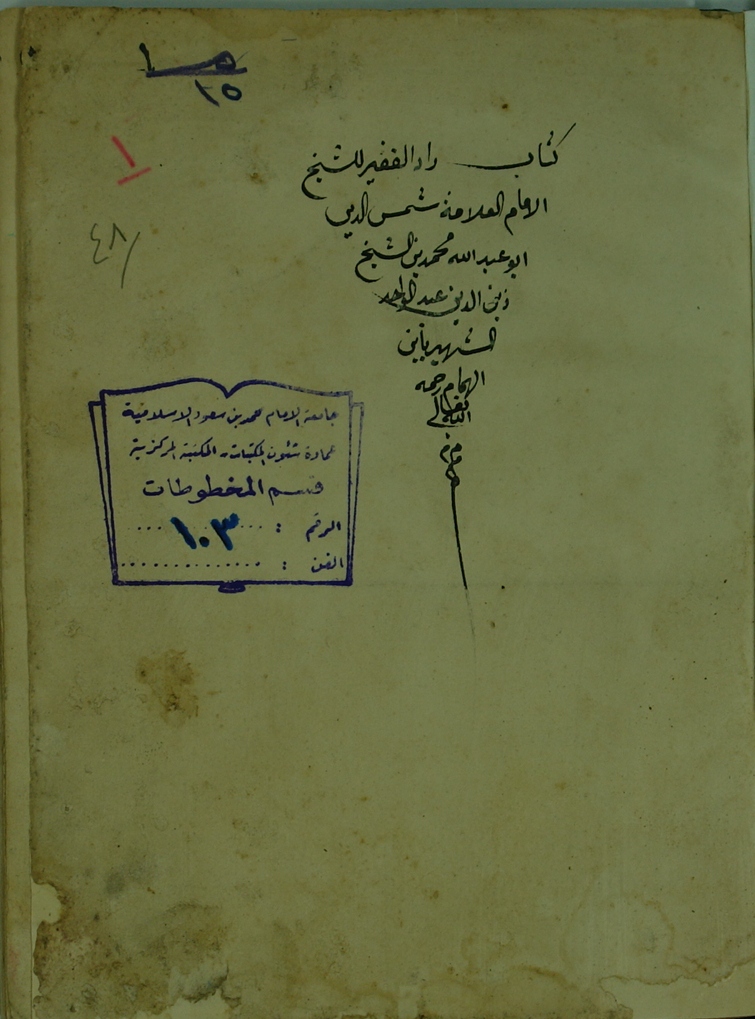 ٢٥
١
٤٨/
كتاب زاد الفقير للشيخ
الامام العلامة شمس الدين
ابو عبد الله محمد بن الشيخ
زين الدين عبد الواحد
الشهير بابن
الهمام رحمه
الله تعالى
جامعة الامام محمد بن سعود الاسلامية
عمادة شئون المكتبات - المكتبة المركزية
قسم المخطوطات
الرقم : ١٠٣
الفن :